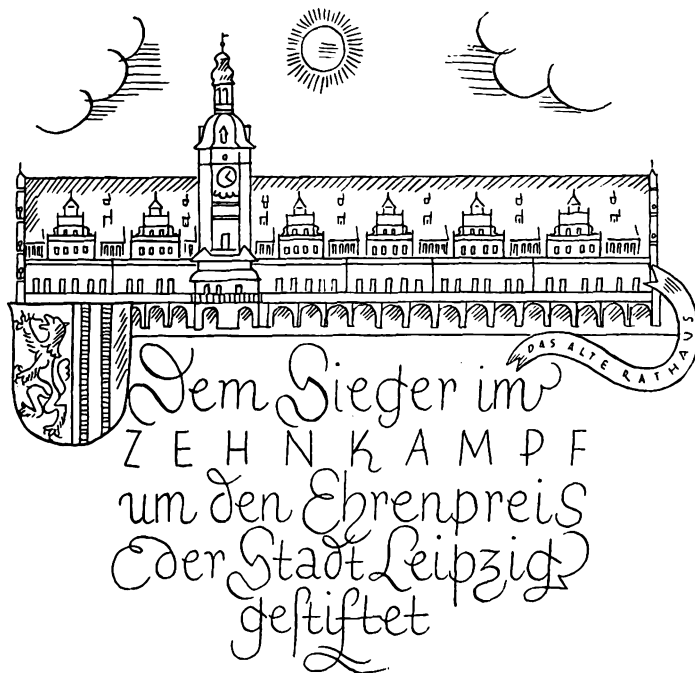 DAS ALTE RATHAUS
Dem Sieger im
ZEHNKAMPF
um den Ehrenpreis
der Stadt Leipzig
geſtiftet